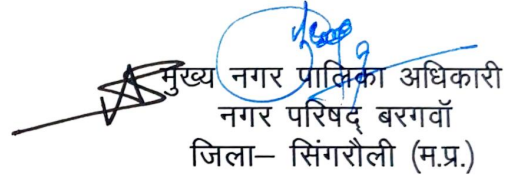 मुख्य नगर पालिका अधिकारी
नगर परिषद् बरगवॉ
जिला– सिंगरौली (म.प्र.)